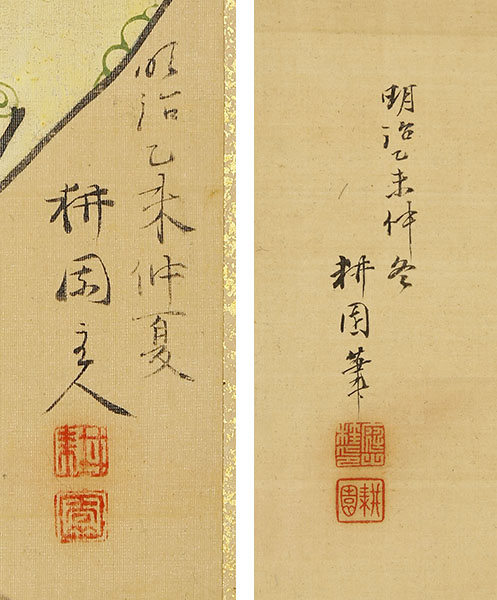 明治乙未仲夏
耕園主人
耕
園
明治乙未仲冬
耕園筆
耕園